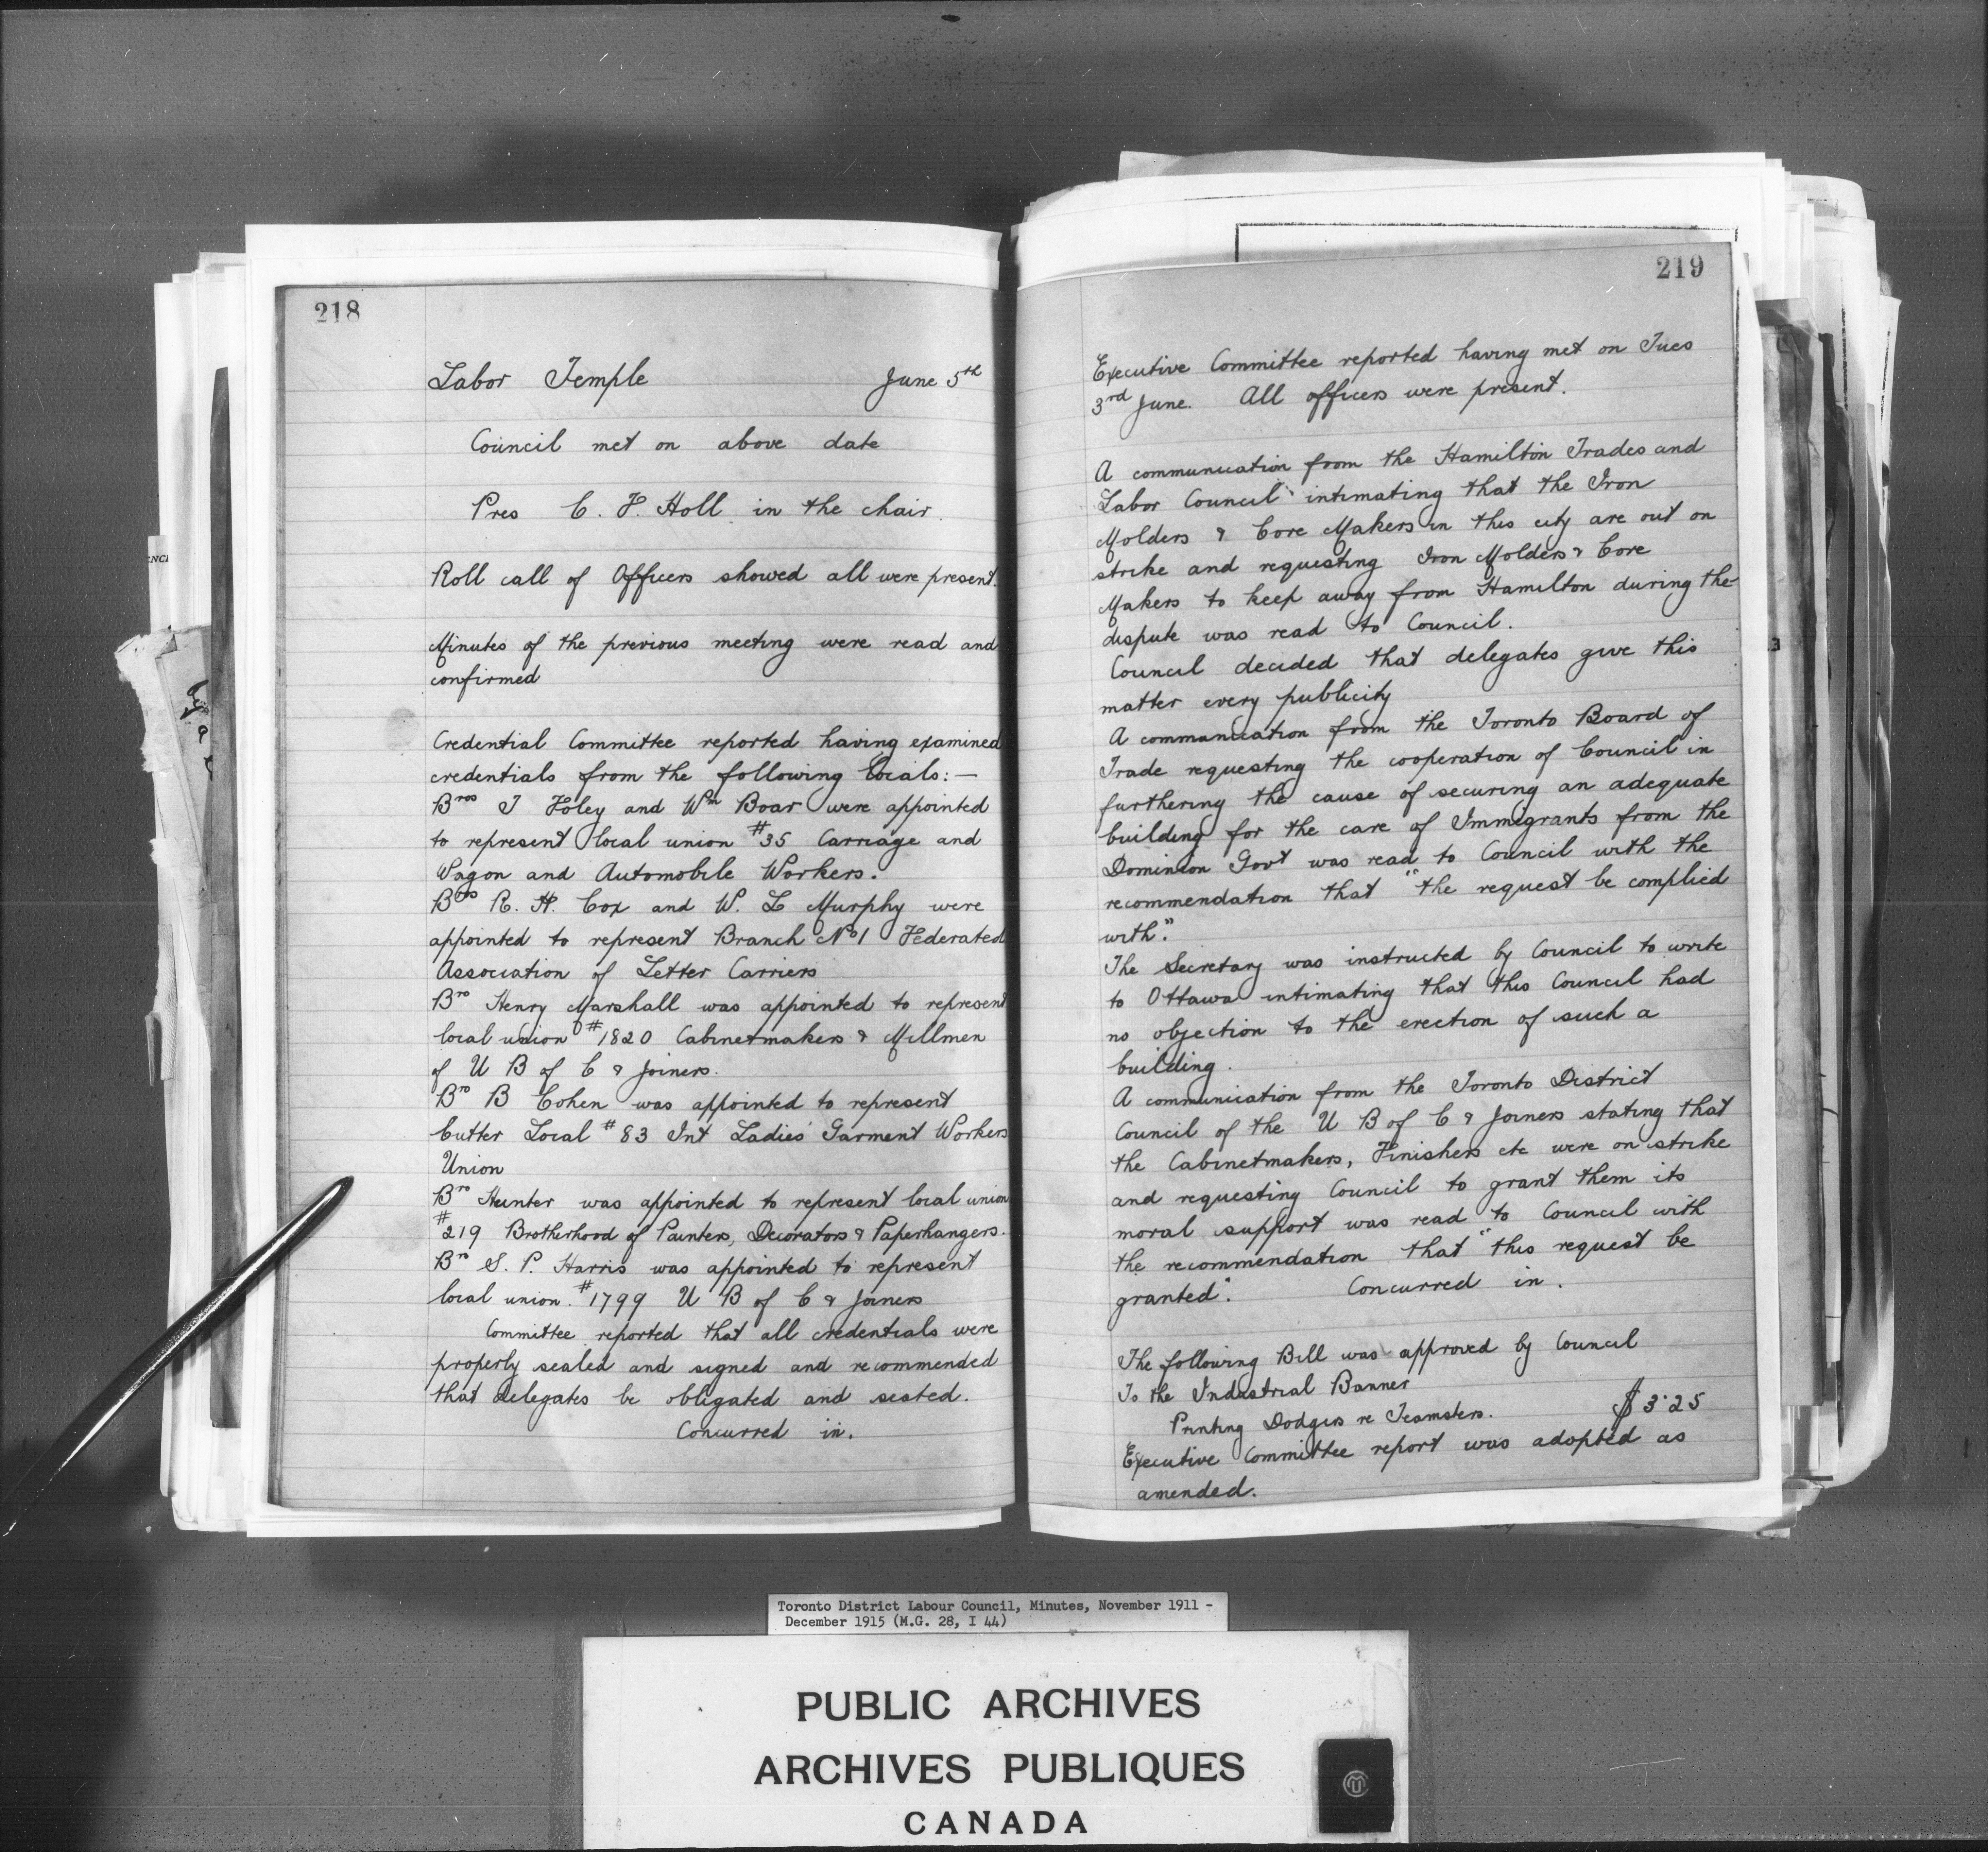 218
Labor Temple June 5th
Council met on above date
Pres C. F. Holl in the chair.
Roll call of Officers showed all were present.
Minutes of the previous meeting were read and
confirmed
Credential Committee reported having examined
credentials from the following locals:—
Bros J Foley and Wm Boar were appointed
to represent local union #35 Carriage and
Wagon and Automobile Workers.
Bros R. H. Cox and W. L Murphy were
appointed to represent Branch No 1 Federated
Association of Letter Carriers
Bro Henry Marshall was appointed to represent
local union #1820 Cabinetmakers & Millmen
of U B of C & Joiners.
Bro B Cohen was appointed to represent
Cutter Local #83 Int Ladies' Garment Workers
Union
Bro Hunter was appointed to represent local union
#219 Brotherhood of Painters, Decorators & Paperhangers.
Bro S. P. Harris was appointed to represent
local union #1799 U B of C & Joiners
Committee reported that all credentials were
properly sealed and signed and recommended
that delegates be obligated and seated.
Concurred in.
219
Executive Committee reported having met on Tues
3rd June. All officers were present.
A communication from the Hamilton Trades and
Labor Council intimating that the Iron
Molders & Core Makers in this city are out on
strike and requesting Iron Molders & Core
Makers to keep away from Hamilton during the
dispute was read to Council.
Council decided that delegates give this
matter every publicity
A communication from the Toronto Board of
Trade requesting the cooperation of Council in
furthering the cause of securing an adequate
building for the care of Immigrants from the
Dominion Govt was read to Council with the
recommendation that "the request be complied
with".
The Secretary was instructed by Council to write
to Ottawa intimating that this Council had
no objection to the erection of such a
building.
A communication from the Toronto District
Council of the U B of C & Joiners stating that
the Cabinetmakers, Finishers etc were on strike
and requesting Council to grant them its
moral support was read to Council with
the recommendation that "this request be
granted". Concurred in.
The following Bill was approved by Council
To the Industrial Banner
Printing Dodgers re Teamsters. $3.25
Executive Committee report was adopted as
amended.
Toronto District Labour Council, Minutes, November 1911 -
December 1915 (M.G. 28, I 44)
PUBLIC ARCHIVES
ARCHIVES PUBLIQUES
CANADA